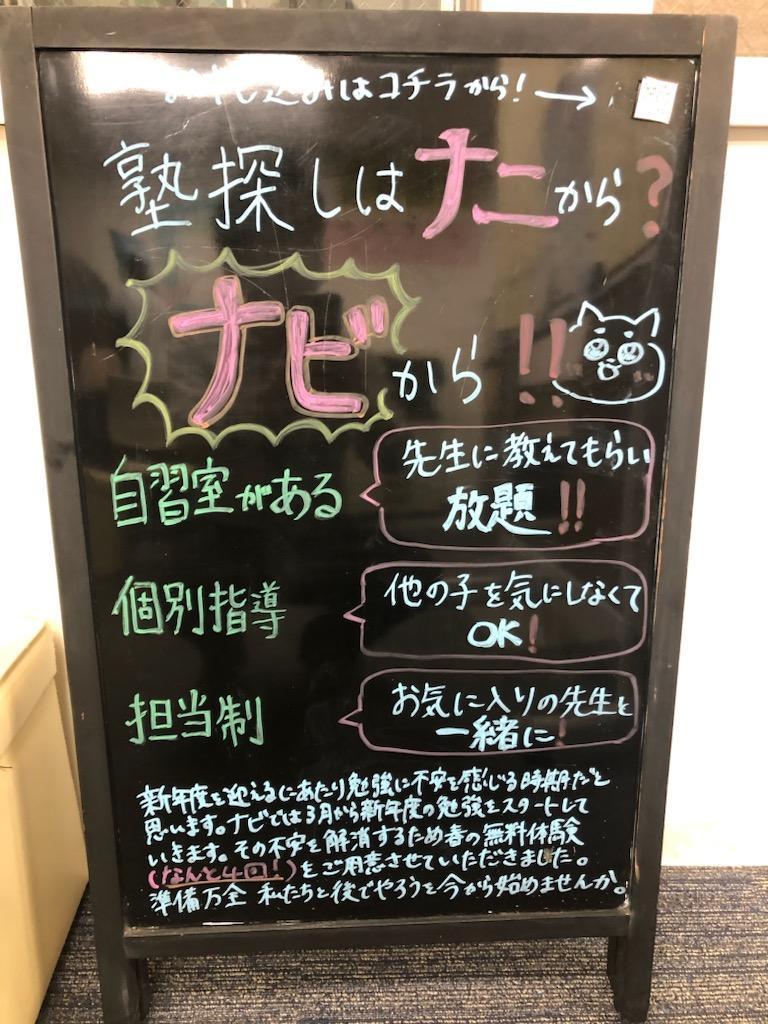 お申し込みはコチラから!→
塾探しはナニから?
ナビから!!
自習室がある
先生に教えてもらい
放題!!
個別指導
他の子を気にしなくて
OK!
担当制
お気に入りの先生と
一緒に!
新年度を迎えるにあたり勉強に不安を感じる時期だと
思います。ナビでは3月から新年度の勉強をスタートして
いきます。その不安を解消するため春の無料体験
(なんと4回!)をご用意させていただきました。
準備万全 私たちと後でやろうを今から始めませんか。